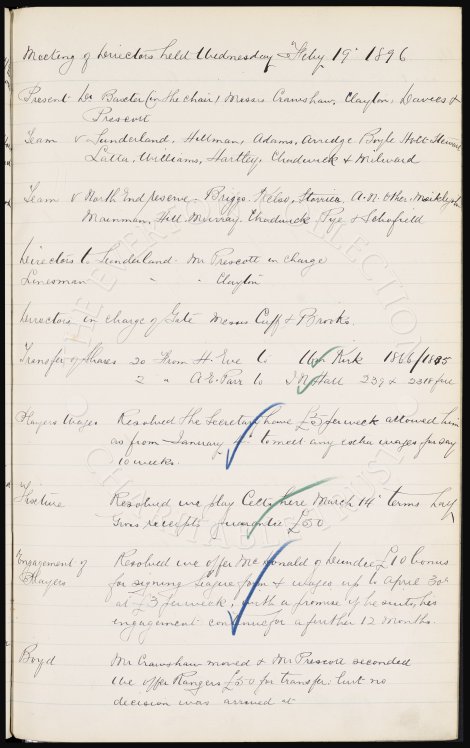 Meeting of Directors held Wednesday Feby 19th 1896
Present Dr Baxter (in the chair) Messrs Crawshaw, Clayton, Davies &
Prescott
Team v Sunderland, Hillman, Adams, Arridge Boyle Holt Stewart
Latta, Williams, Hartley, Chadwick & Milward
Team v North End reserve. Briggs. Kelso, Storrier. A.N. Other, Meiklejohn
Mainman, Hill Murray. Chadwick, Pye & Schofield
Directors to Sunderland - Mr Prescott in charge
Linesman " " Clayton
Directors in charge of Gate Messrs Cuff & Brooks.
Transfer of Shares 20 from H. Eve to Kirk 1866/1885
2 " A.E. Parr to Hall 239 &
Players Wages Resolved the Secretary have £5 per week allowed him
as from January to meet any extra wages for say
10 weeks.
Fixture Resolved we play Celtic here March 14th terms half
Gross receipts guarantee £50
Engagement of Resolved we offer McDonald of Dundee £10 bonus
Players for signing League form & wages up to April 30th
at £3 per week, with a promise if he suits, his
engagement continue for a further 12 months.
Boyd Mr Crawshaw moved & Mr Prescott seconded
we offer Rangers £50 for transfer: but no
decision was arrived at
THE EVERTON COLLECTION
CHARITABLE TRUST